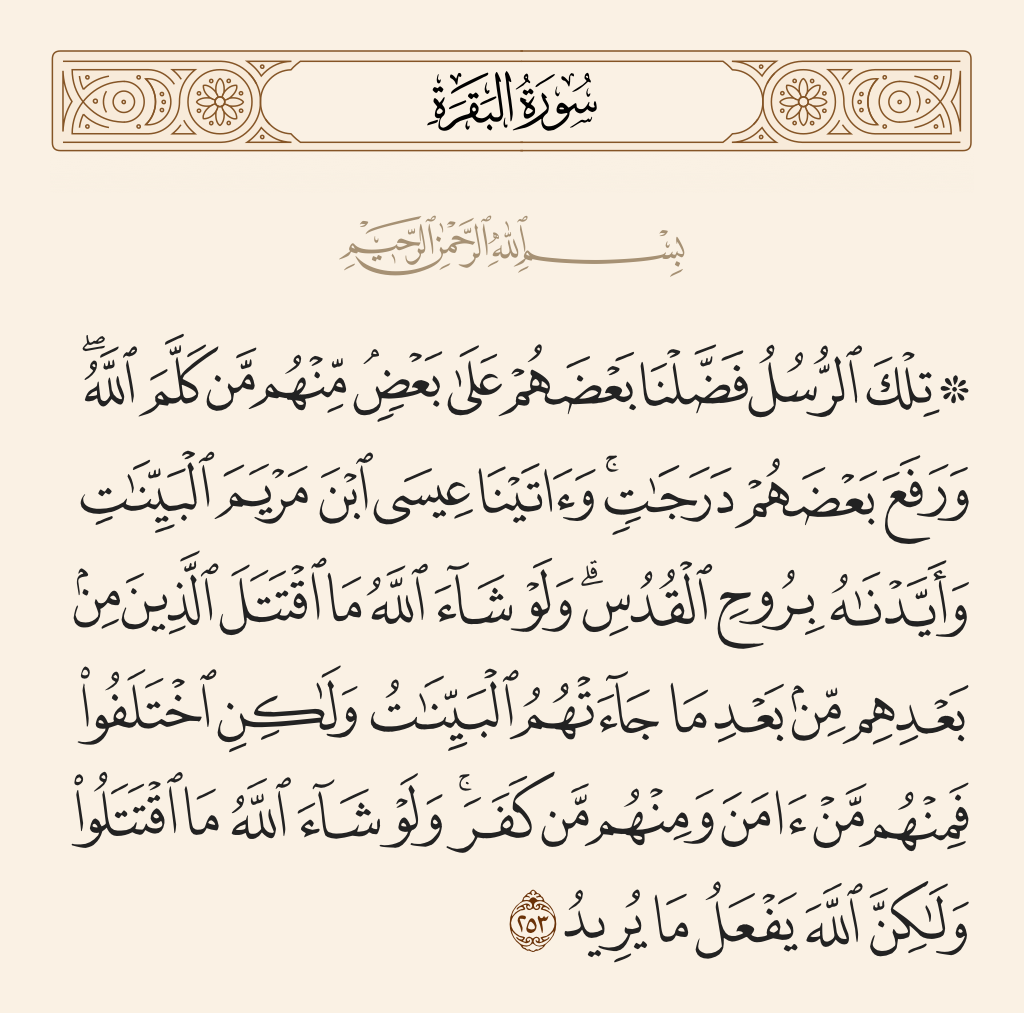 سُورَةُ البَقَرَةِ
بِسْمِ ٱللَّهِ ٱلرَّحْمَٰنِ ٱلرَّحِيمِ
۞ تِلْكَ ٱلرُّسُلُ فَضَّلْنَا بَعْضَهُمْ عَلَىٰ بَعْضٍۘ مِّنْهُم مَّن كَلَّمَ ٱللَّهُۖ
وَرَفَعَ بَعْضَهُمْ دَرَجَٰتٍۚ وَءَاتَيْنَا عِيسَى ٱبْنَ مَرْيَمَ ٱلْبَيِّنَٰتِ
وَأَيَّدْنَٰهُ بِرُوحِ ٱلْقُدُسِۗ وَلَوْ شَآءَ ٱللَّهُ مَا ٱقْتَتَلَ ٱلَّذِينَ مِنۢ
بَعْدِهِم مِّنۢ بَعْدِ مَا جَآءَتْهُمُ ٱلْبَيِّنَٰتُ وَلَٰكِنِ ٱخْتَلَفُوا۟
فَمِنْهُم مَّنْ ءَامَنَ وَمِنْهُم مَّن كَفَرَۚ وَلَوْ شَآءَ ٱللَّهُ مَا ٱقْتَتَلُوا۟
وَلَٰكِنَّ ٱللَّهَ يَفْعَلُ مَا يُرِيدُ ٢٥٣